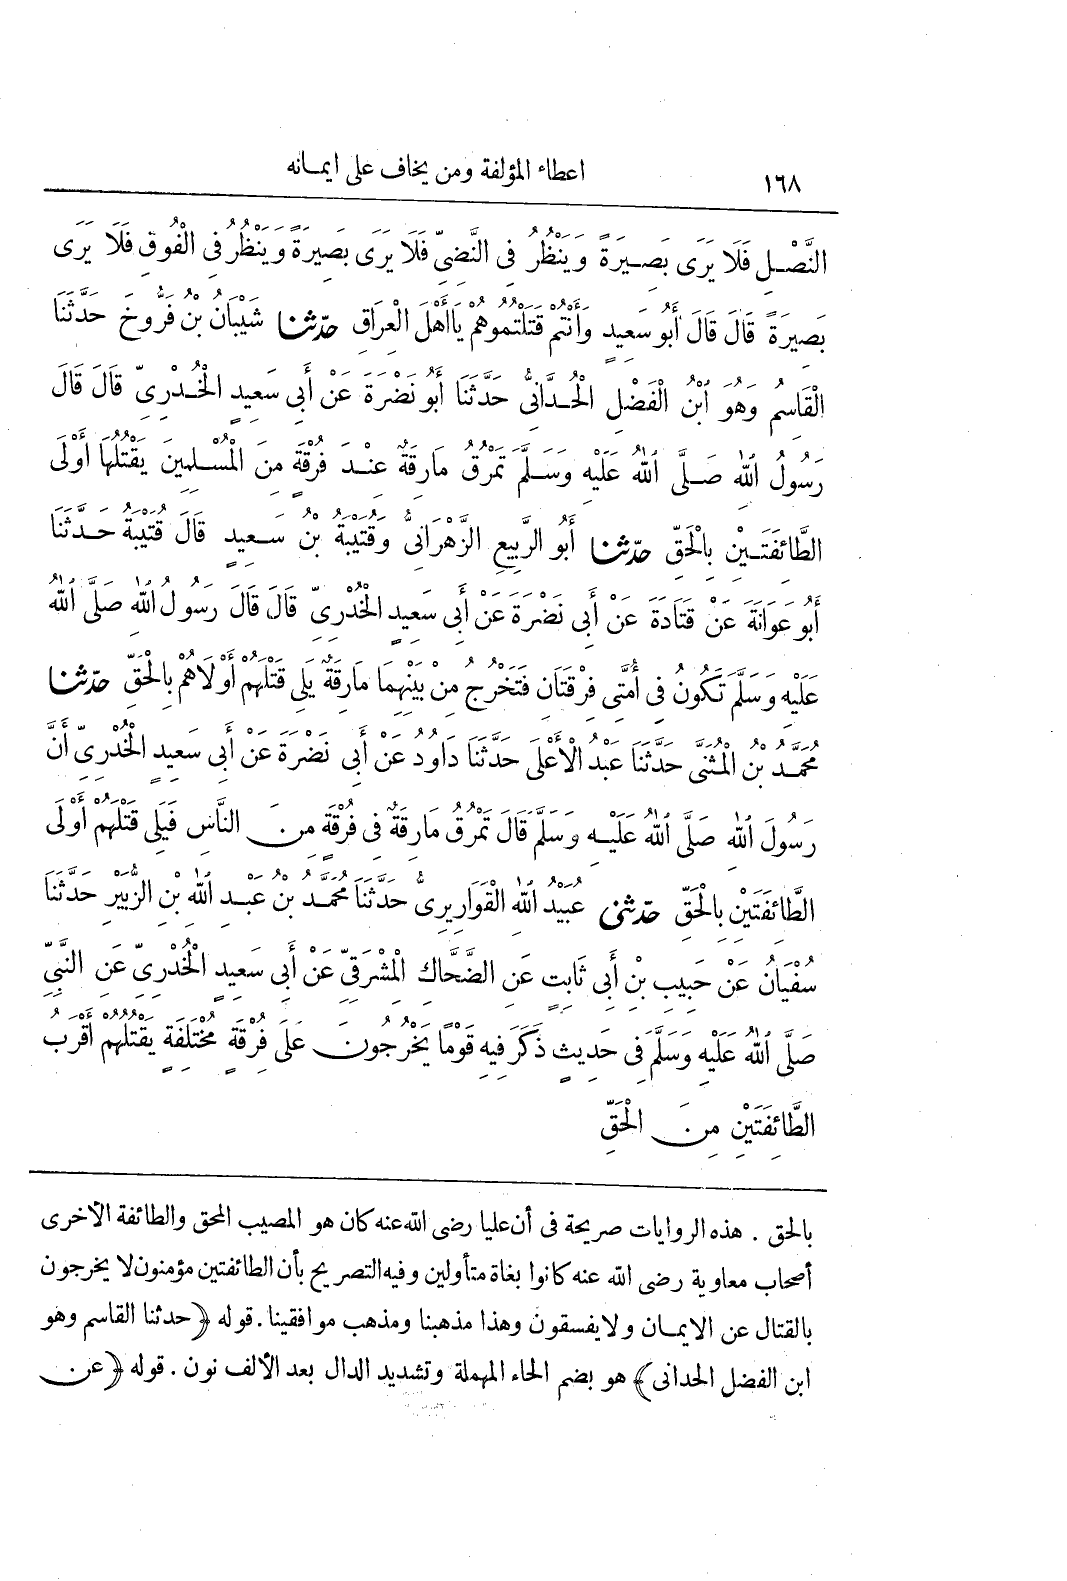 ١٦٨ اعطاء المؤلفة ومن يخاف على ايمانه
النَّصْلِ فَلَا يَرَى بَصِيرَةً وَيَنْظُرُ فِى النَّضِىِّ فَلَا يَرَى بَصِيرَةً وَيَنْظُرُ فِى الْفُوقِ فَلَا يَرَى
بَصِيرَةً قَالَ قَالَ أَبُو سَعِيدٍ وَأَنْتُمْ قَتَلْتُمُوهُمْ يَاأَهْلَ الْعِرَاقِ حَدَّثَنَا شَيْبَانُ بْنُ فَرُّوخَ حَدَّثَنَا
الْقَاسِمُ وَهُوَ ابْنُ الْفَضْلِ الْحُدَّانِىُّ حَدَّثَنَا أَبُو نَضْرَةَ عَنْ أَبِى سَعِيدٍ الْخُدْرِىِّ قَالَ قَالَ
رَسُولُ اللهِ صَلَّى اللهُ عَلَيْهِ وَسَلَّمَ تَمْرُقُ مَارِقَةٌ عِنْدَ فُرْقَةٍ مِنَ الْمُسْلِمِينَ يَقْتُلُهَا أَوْلَى
الطَّائِفَتَيْنِ بِالْحَقِّ حَدَّثَنَا أَبُو الرَّبِيعِ الزَّهْرَانِىُّ وَقُتَيْبَةُ بْنُ سَعِيدٍ قَالَ قُتَيْبَةُ حَدَّثَنَا
أَبُو عَوَانَةَ عَنْ قَتَادَةَ عَنْ أَبِى نَضْرَةَ عَنْ أَبِى سَعِيدٍ الْخُدْرِىِّ قَالَ قَالَ رَسُولُ اللهِ صَلَّى اللهُ
عَلَيْهِ وَسَلَّمَ تَكُونُ فِى أُمَّتِى فِرْقَتَانِ فَتَخْرُجُ مِنْ بَيْنِهِمَا مَارِقَةٌ يَلِى قَتْلَهُمْ أَوْلَاهُمْ بِالْحَقِّ حَدَّثَنَا
مُحَمَّدُ بْنُ الْمُثَنَّى حَدَّثَنَا عَبْدُ الْأَعْلَى حَدَّثَنَا دَاوُدُ عَنْ أَبِى نَضْرَةَ عَنْ أَبِى سَعِيدٍ الْخُدْرِىِّ أَنَّ
رَسُولَ اللهِ صَلَّى اللهُ عَلَيْهِ وَسَلَّمَ قَالَ تَمْرُقُ مَارِقَةٌ فِى فُرْقَةٍ مِنَ النَّاسِ فَيَلِى قَتْلَهُمْ أَوْلَى
الطَّائِفَتَيْنِ بِالْحَقِّ حَدَّثَنِى عُبَيْدُ اللهِ الْقَوَارِيرِىُّ حَدَّثَنَا مُحَمَّدُ بْنُ عَبْدِ اللهِ بْنِ الزُّبَيْرِ حَدَّثَنَا
سُفْيَانُ عَنْ حَبِيبِ بْنِ أَبِى ثَابِتٍ عَنِ الضَّحَّاكِ الْمِشْرَقِىِّ عَنْ أَبِى سَعِيدٍ الْخُدْرِىِّ عَنِ النَّبِىِّ
صَلَّى اللهُ عَلَيْهِ وَسَلَّمَ فِى حَدِيثٍ ذَكَرَ فِيهِ قَوْمًا يَخْرُجُونَ عَلَى فُرْقَةٍ مُخْتَلِفَةٍ يَقْتُلُهُمْ أَقْرَبُ
الطَّائِفَتَيْنِ مِنَ الْحَقِّ
بالحق . هذه الروايات صريحة فى أن عليا رضى الله عنه كان هو المصيب المحق والطائفة الأخرى
أصحاب معاوية رضى الله عنه كانوا بغاة متأولين وفيه التصريح بأن الطائفتين مؤمنون لا يخرجون
بالقتال عن الايمان ولا يفسقون وهذا مذهبنا ومذهب موافقينا . قوله ﴿حدثنا القاسم وهو
ابن الفضل الحدانى﴾ هو بضم الحاء المهملة وتشديد الدال بعد الألف نون . قوله ﴿عن